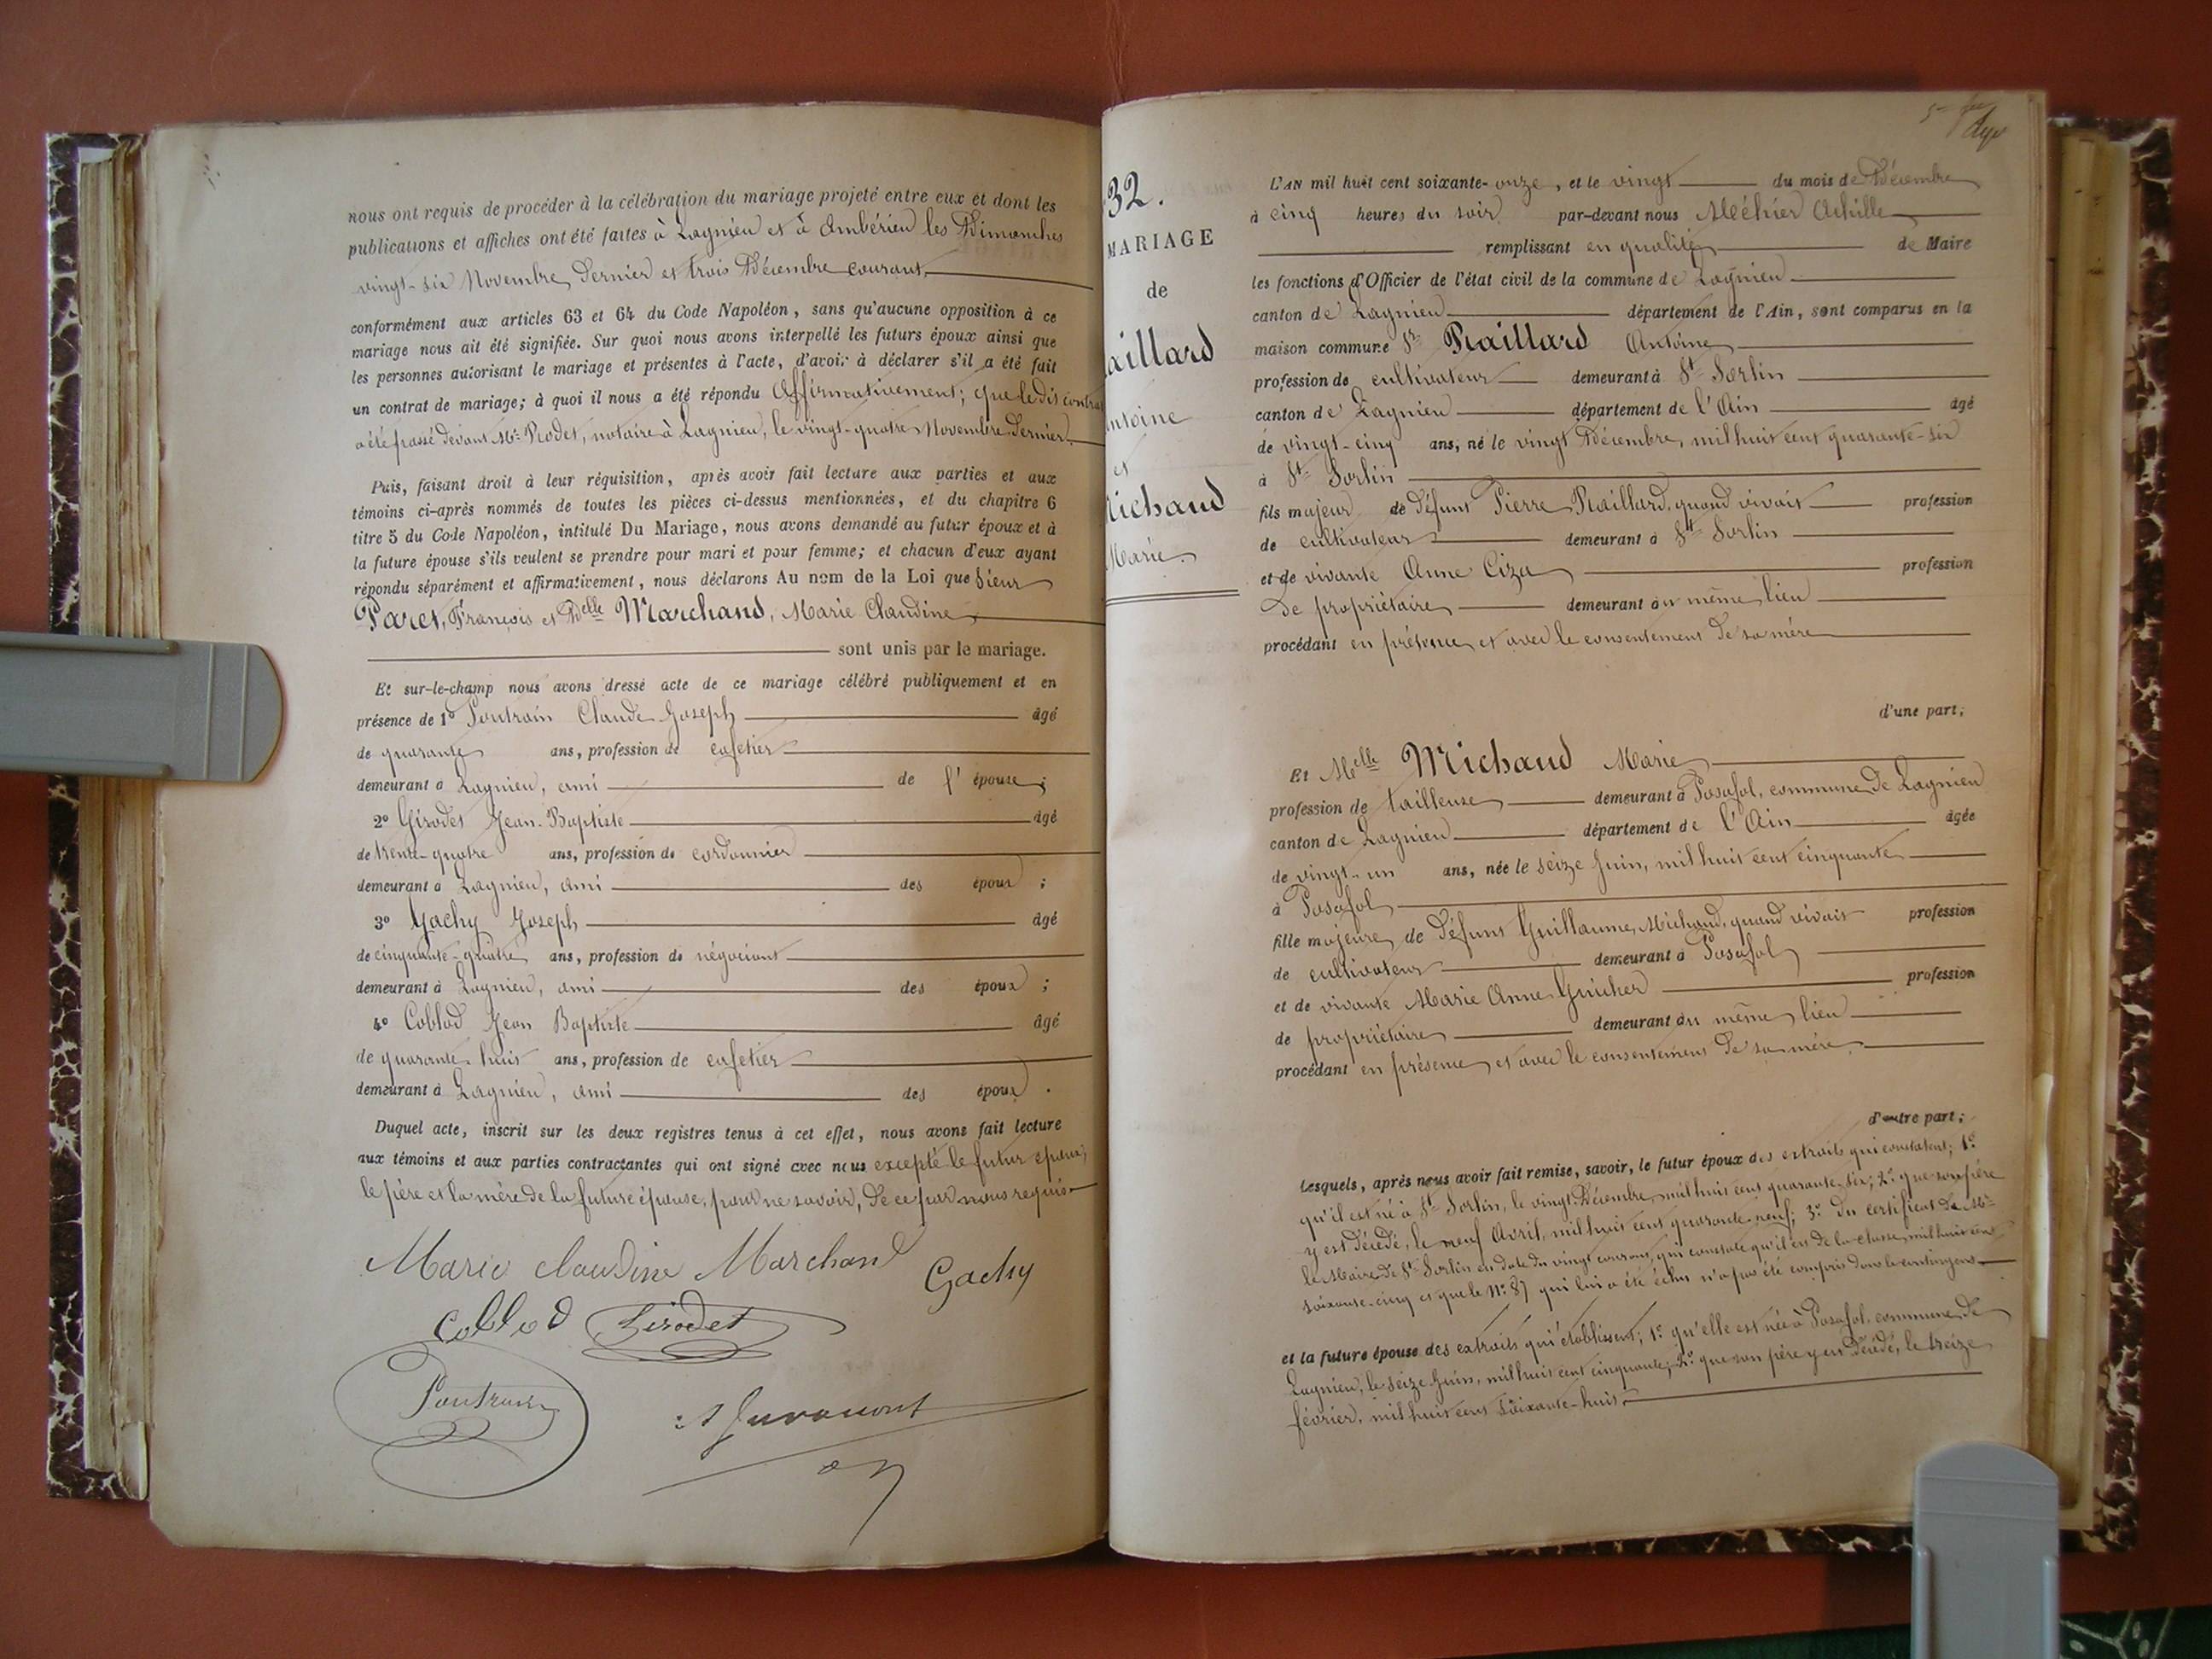 nous ont requis de procéder à la célébration du mariage projeté entre eux et dont les
publications et affiches ont été faites à Lagnieu et à Ambérieu les Dimanches
vingt-six Novembre dernier et trois Décembre courant.
conformément aux articles 63 et 64 du Code Napoléon, sans qu'aucune opposition à ce
mariage nous ait été signifiée. Sur quoi nous avons interpellé les futurs époux ainsi que
les personnes autorisant le mariage et présentes à l'acte, d'avoir à déclarer s'il a été fait
un contrat de mariage; à quoi il nous a été répondu Affirmativement; que le dit contrat
a été passé devant Me Rodet, notaire à Lagnieu, le vingt-quatre Novembre dernier.
Puis, faisant droit à leur réquisition, après avoir fait lecture aux parties et aux
témoins ci-après nommés de toutes les pièces ci-dessus mentionnées, et du chapitre 6
titre 5 du Code Napoléon, intitulé Du Mariage, nous avons demandé au futur époux et à
la future épouse s'ils veulent se prendre pour mari et pour femme; et chacun d'eux ayant
répondu séparément et affirmativement, nous déclarons Au nom de la Loi que Sieur
Paret, François et Delle Marchand, Marie Claudine
sont unis par le mariage.
Et sur-le-champ nous avons dressé acte de ce mariage célébré publiquement et en
présence de 1o Poutrain Claude Joseph âgé
de quarante ans, profession de cafetier
demeurant à Lagnieu, ami de l' épouse;
2o Girodet Jean-Baptiste âgé
de trente-quatre ans, profession de cordonnier
demeurant à Lagnieu, ami des époux;
3o Gachy Joseph âgé
de cinquante-quatre ans, profession de négociant
demeurant à Lagnieu, ami des époux;
4o Coblod Jean Baptiste âgé
de quarante-huit ans, profession de cafetier
demeurant à Lagnieu, ami des époux.
Duquel acte, inscrit sur les deux registres tenus à cet effet, nous avons fait lecture
aux témoins et aux parties contractantes qui ont signé avec nous excepté le futur époux,
le père et la mère de la future épouse, pour ne savoir, de ce par nous requis
Marie claudine Marchand
Gachy
Coblod Girodet
Poutrain
32.
MARIAGE
de
aillard
ntoine
et
ichaud
Marie.
L'AN mil huit cent soixante-onze, et le vingt du mois de Décembre
à cinq heures du soir par-devant nous Méhier Achille
remplissant en qualité de Maire
les fonctions d'Officier de l'état civil de la commune de Lagnieu
canton de Lagnieu département de l'Ain, sont comparus en la
maison commune Sr Raillard Antoine
profession de cultivateur demeurant à St Sorlin
canton de Lagnieu département de l'Ain âgé
de vingt-cinq ans, né le vingt Décembre, mil huit cent quarante-six
à St Sorlin
fils majeur de défunt Pierre Raillard, quand vivait profession
de cultivateur demeurant à St Sorlin
et de vivante Anne Ciza profession
de propriétaire demeurant au même lieu
procédant en présence et avec le consentement de sa mère
d'une part;
Et Melle Michaud Marie
profession de tailleuse demeurant à Posafol, commune de Lagnieu
canton de Lagnieu département de l'Ain âgée
de vingt-un ans, née le seize Juin, mil huit cent cinquante
à Posafol
fille majeure de défunt Guillaume Michaud, quand vivait profession
de cultivateur demeurant à Posafol
et de vivante Marie Anne Guicher profession
de propriétaire demeurant au même lieu
procédant en présence et avec le consentement de sa mère
d'autre part;
Lesquels, après nous avoir fait remise, savoir, le futur époux des extraits qui constatent; 1o
qu'il est né à St Sorlin, le vingt Décembre, mil huit cent quarante-six; 2o que son père
y est décédé, le neuf Avril, mil huit cent quarante-neuf; 3o du certificat de Mr
le Maire de St Sorlin en date du vingt courant, qui constate qu'il est de la classe mil huit cent
soixante-cinq et que le No 87 qui lui a été échu n'a pas été compris dans le contingent
et la future épouse des extraits qui établissent; 1o qu'elle est née à Posafol, commune de
Lagnieu, le seize Juin, mil huit cent cinquante; 2o que son père y est décédé, le treize
février, mil huit cent soixante-huit.